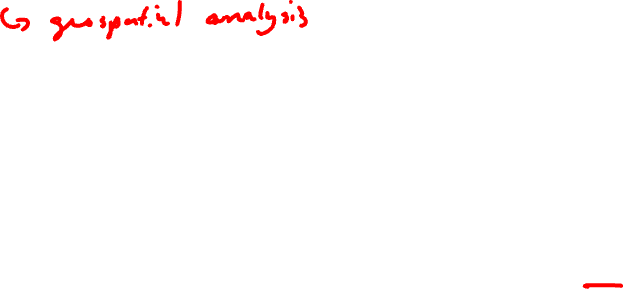 ↳ geospatial analysis